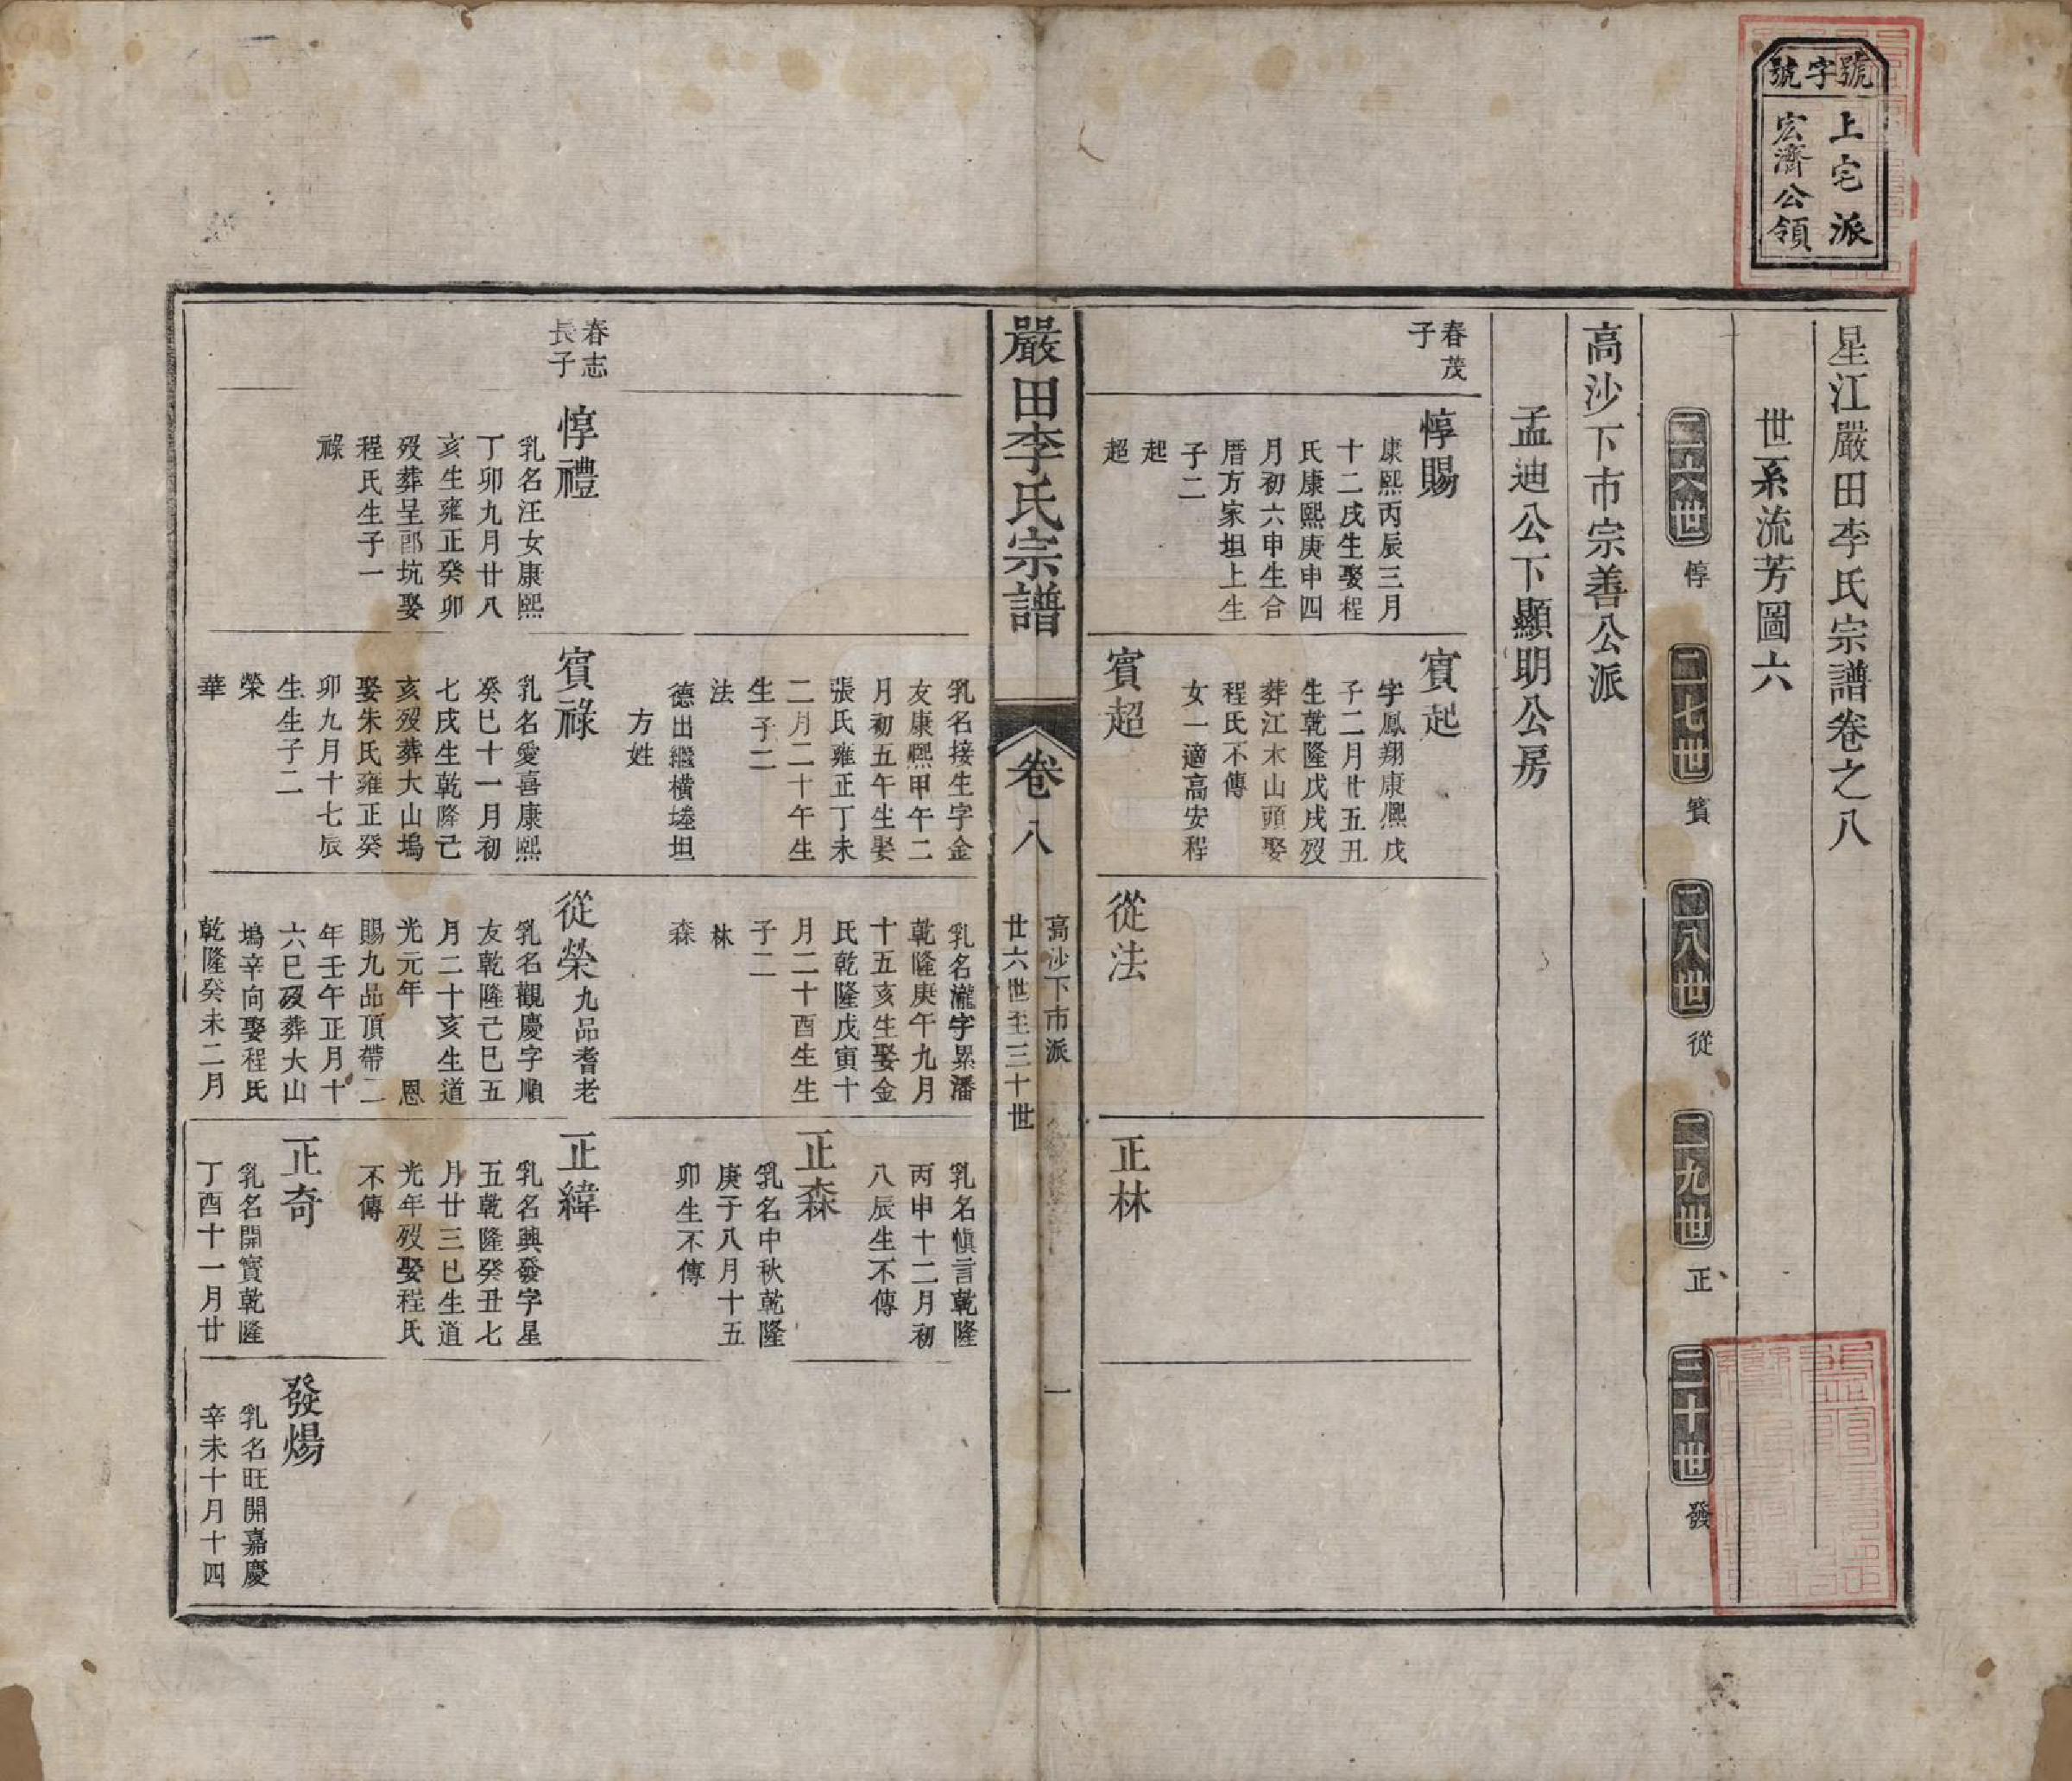 號字號
上宅派
宏濟公領
星江嚴田李氏宗譜卷之八
世系流芳圖六
二六世 惇 二七世 賓 二八世 從 二九世 正 三十世 發
高沙下市宗善公派
孟迪公下顯明公房
春茂
子
惇賜
康熙丙辰三月
十二戌生娶程
氏康熙庚申四
月初六申生合
厝方家坦上生
子二
起
超
賓起
字鳳翔康熙戊
子二月廿五丑
生乾隆戊戌歿
葬江木山頭娶
程氏不傳
女一適高安程
賓超
從法
正林
嚴田李氏宗譜
卷八
高沙下市派
廿六世至三十世
一
乳名接生字金
友康熙甲午二
月初五午生娶
張氏雍正丁未
二月二十午生
生子二
法
德出繼橫墱坦
方姓
乳名瀧字累潘
乾隆庚午九月
十五亥生娶金
氏乾隆戊寅十
月二十酉生生
子二
林
森
乳名慎言乾隆
丙申十二月初
八辰生不傳
正森
乳名中秋乾隆
庚子八月十五
卯生不傳
春志
長子
惇禮
乳名汪女康熙
丁卯九月廿八
亥生雍正癸卯
歿葬呈郎坑娶
程氏生子一
祿
賓祿
乳名愛喜康熙
癸巳十一月初
七戌生乾隆己
亥歿葬大山塢
娶朱氏雍正癸
卯九月十七辰
生生子二
榮
華
從榮 九品耆老
乳名觀慶字順
友乾隆己巳五
月二十亥生道
光元年 恩
賜九品頂帶二
年壬午正月十
六巳歿葬大山
塢辛向娶程氏
乾隆癸未二月
正緯
乳名興發字星
五乾隆癸丑七
月廿三巳生道
光年歿娶程氏
不傳
正奇
乳名開寶乾隆
丁酉十一月廿
發煬
乳名旺開嘉慶
辛未十月十四